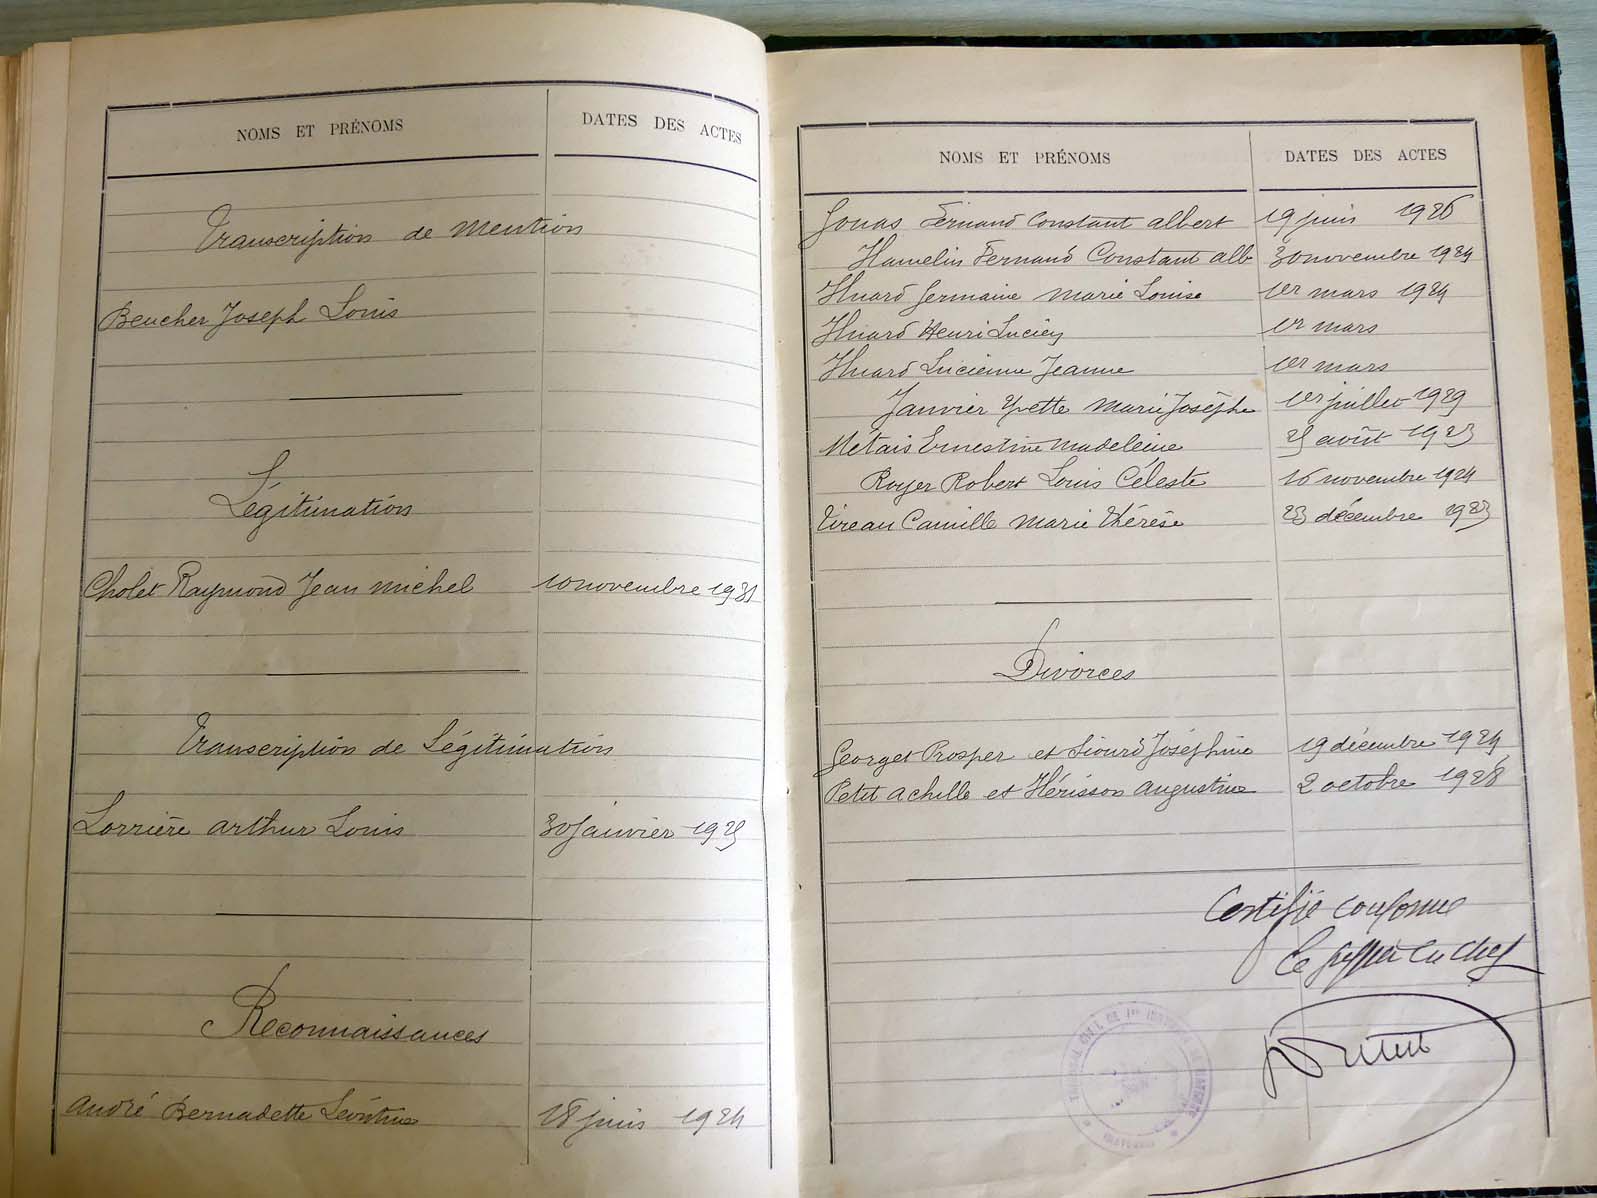 NOMS ET PRÉNOMS DATES DES ACTES
Transcription de Mention
Beucher Joseph Louis
Légitimation
Cholet Raymond Jean Michel 10 novembre 1931
Transcription de Légitimation
Lorrière Arthur Louis 30 janvier 1925
Reconnaissances
André Bernadette Léontine 18 juin 1924
NOMS ET PRÉNOMS DATES DES ACTES
Gouas Fernand Constant Albert 19 juin 1926
Hamelin Fernand Constant alb 30 novembre 1924
Huard Germaine Marie Louise 1er mars 1924
Huard Henri Lucien 1er mars
Huard Lucienne Jeanne 1er mars
Janvier Yvette Marie Josèphe 1er juillet 1929
Métais Ernestine Madeleine 25 août 1923
Royer Robert Louis Céleste 16 novembre 1924
Tireau Camille Marie Thérèse 23 décembre 1923
Divorces
Georget Prosper et Joséphine 19 décembre 1924
Petit Achille et Hérisson Augustine 2 octobre 1928
Certifié conforme
Le greffier en chef
TRIBUNAL CIVIL DE 1re